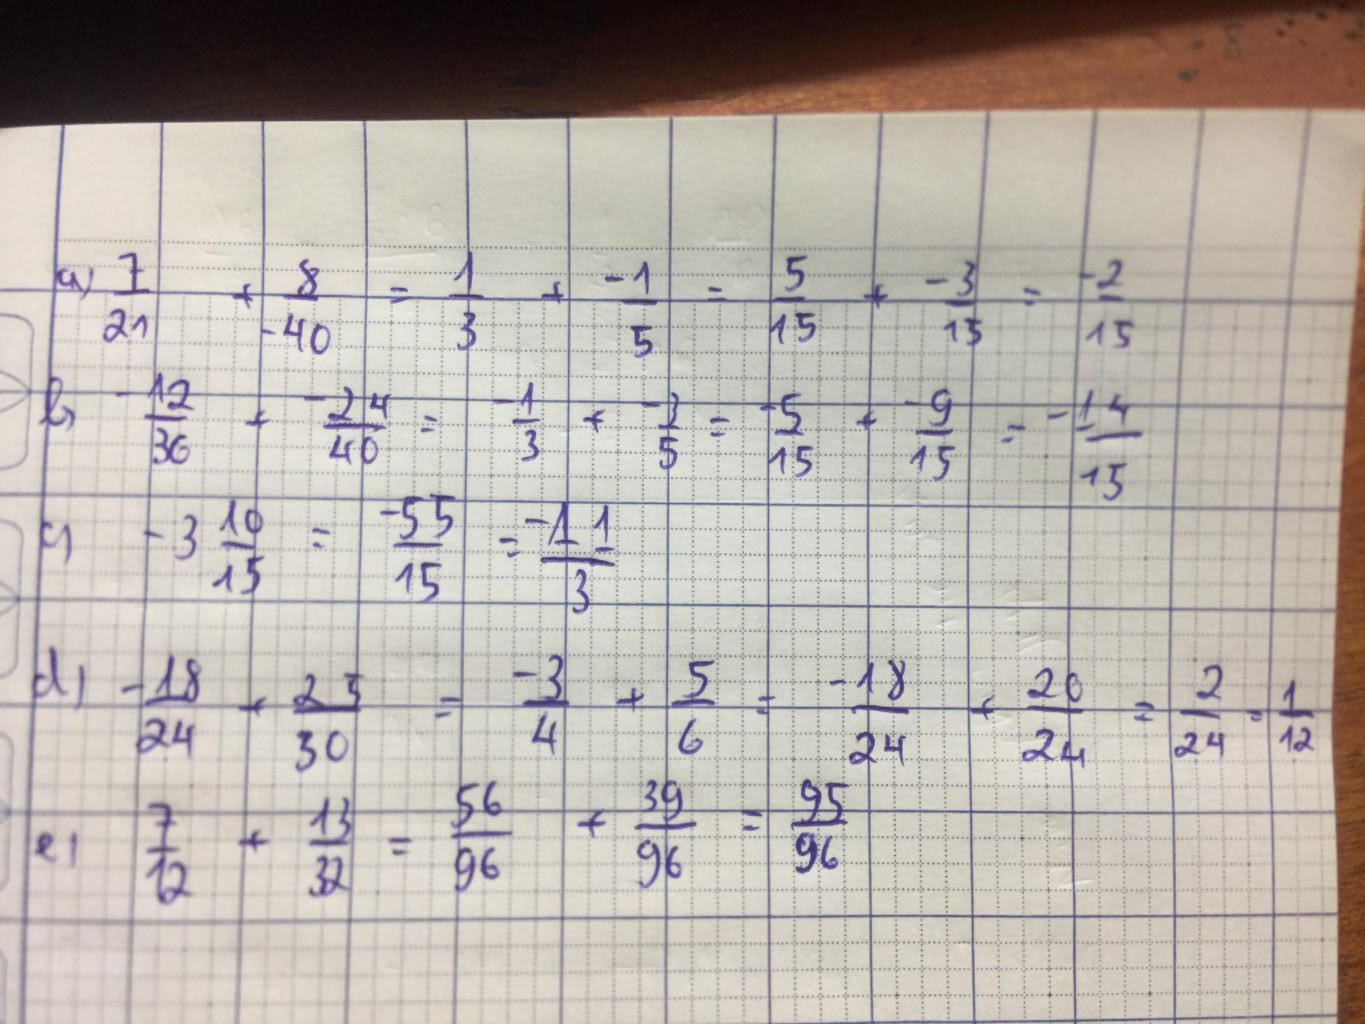 a) 7/21 + 8/-40 = 1/3 + -1/5 = 5/15 + -3/15 = -2/15
b) -12/36 + -24/40 = -1/3 + -3/5 = -5/15 + -9/15 = -14/15
c) -3 10/15 = -55/15 = -11/3
d) -18/24 + 25/30 = -3/4 + 5/6 = -18/24 + 20/24 = 2/24 = 1/12
e) 7/12 + 13/32 = 56/96 + 39/96 = 95/96